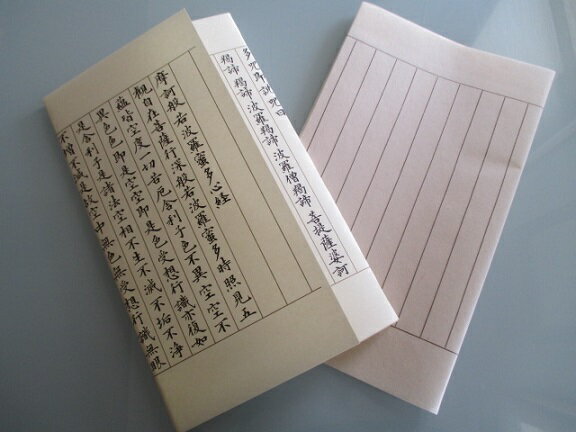 摩訶般若波羅蜜多心経
観自在菩薩行深般若波羅蜜多時照見五
蘊皆空度一切苦厄舎利子色不異空空不
異色色即是空空即是色受想行識亦復如
是舎利子是諸法空相不生不滅不垢不浄
不増不減是故空中無色無受想行識無眼
多呪即説呪曰
羯諦羯諦 波羅羯諦 波羅僧羯諦 菩提薩婆訶